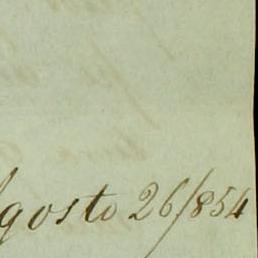 gosto 26/854